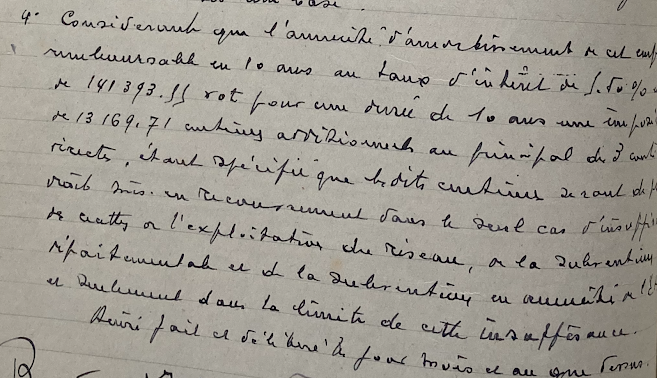 4° Considérant que l'annuité d'amortissement de cet emp
remboursable en 10 ans au taux d'intérêt de 5.50 %
de 141 393.55 soit pour une durée de 10 ans une impos
de 13 169.71 centimes additionnels au principal des 3 cont
directes, étant spécifié que lesdits centimes seront de p
mis en recouvrement dans le seul cas d'insuffi
de recettes de l'exploitation du réseau, de la subvention
départementale et de la subvention en annuités de l'E
et seulement dans la limite de cette insuffisance.
Ainsi fait et délibéré les jour mois et an que dessus.